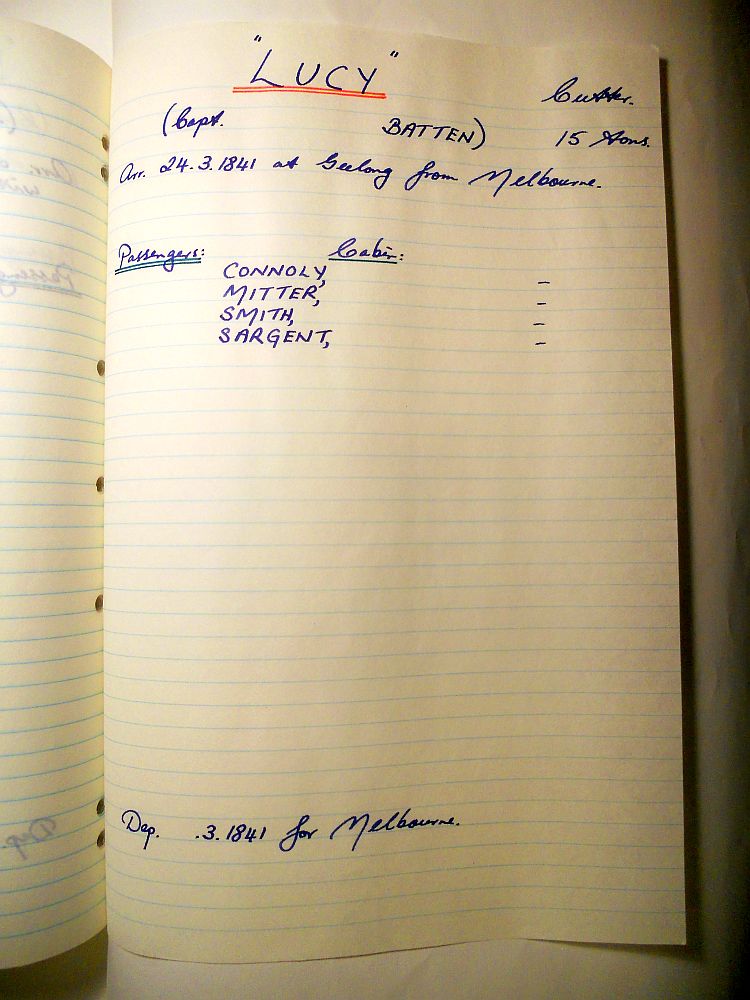 "LUCY"
Cutter.
(Capt. BATTEN) 15 tons.
Arr. 24.3.1841 at Geelong from Melbourne.
Passengers: Cabin:
CONNOLY, –
MITTER, –
SMITH, –
SARGENT, –
Dep. .3.1841 for Melbourne.